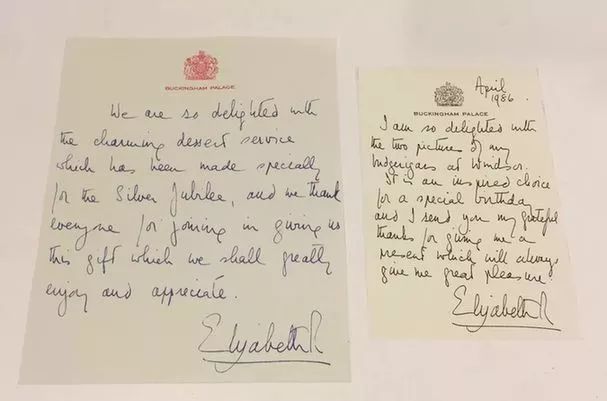 BUCKINGHAM PALACE
We are so delighted with
the charming dessert service
which has been made specially
for the Silver Jubilee, and we thank
everyone for joining in giving us
this gift which we shall greatly
enjoy and appreciate.
Elizabeth R
April
1986
BUCKINGHAM PALACE
I am so delighted with
the two pictures of my
budgerigars at Windsor.
It is an inspired choice
for a special birthday
and I send you my grateful
thanks for giving me a
present which will always
give me great pleasure.
Elizabeth R